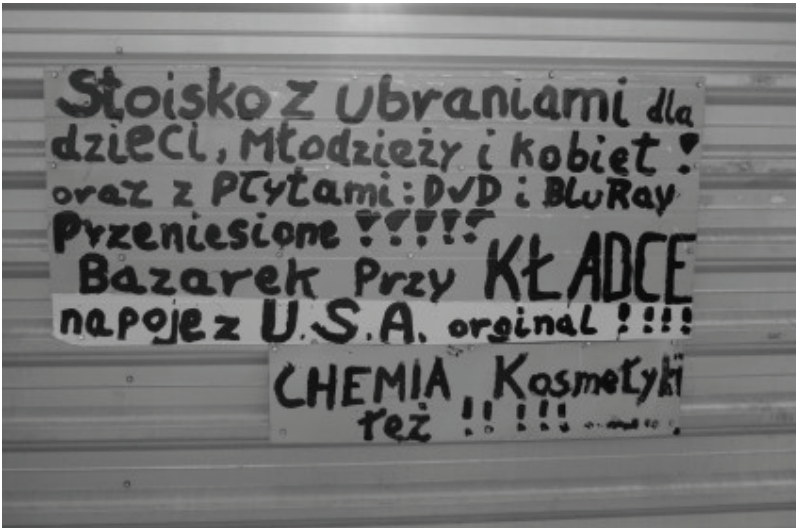 Stoisko z ubraniami dla
dzieci, Młodzieży i kobiet !
oraz z Płytami : DVD i BLuRay
Przeniesione !!!!!
Bazarek Przy KŁADCE
napoje z U.S.A. orginal !!!!
CHEMIA Kosmetyki
też !! !!!